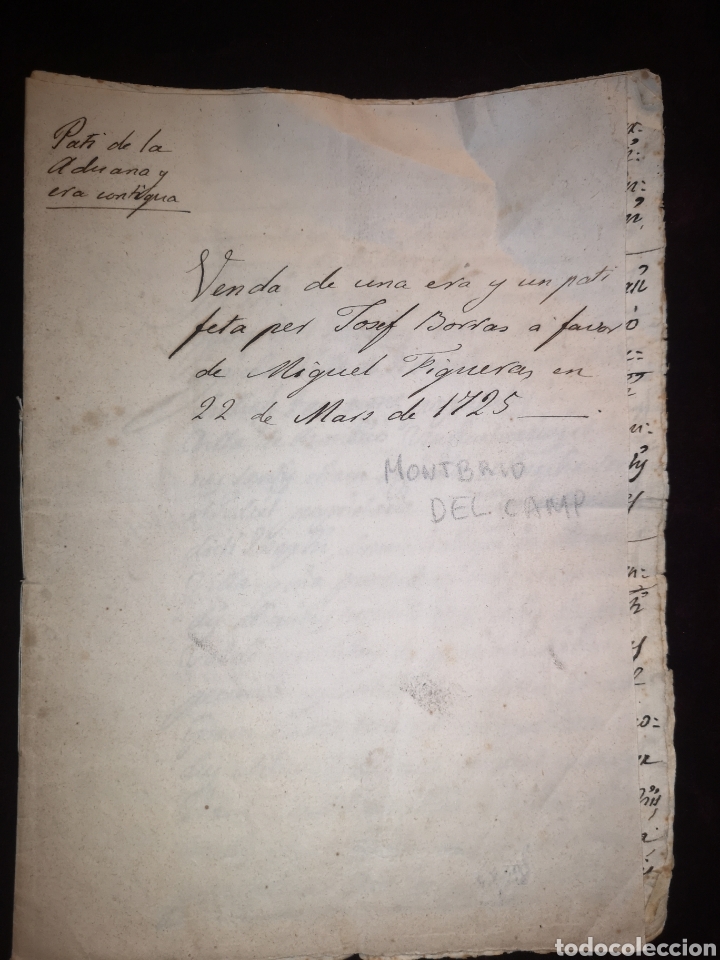 Pati de la
Aduana y
era contigua
Venda de una era y un pati
feta per Josef Borras a favor
de Miguel Figueras en
22 de Mars de 1725
MONTBRIO
DEL CAMP
todocoleccion